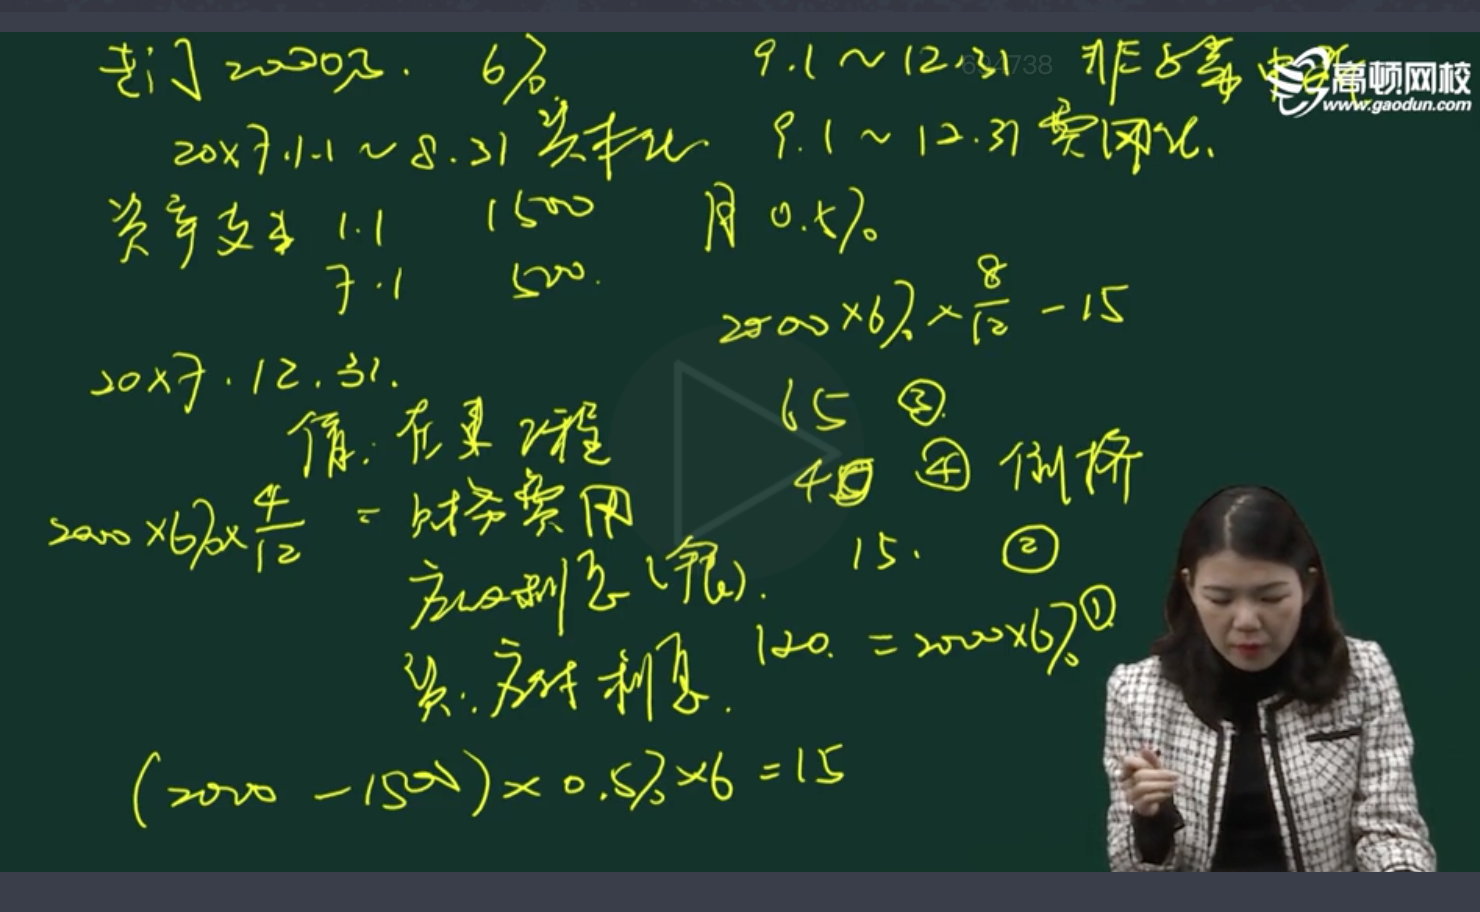 专门 2000万. 6%
9.1~12.31 非正常中断
694738
高顿网校
www.gaodun.com
20×7.1.1~8.31 资本化
9.1~12.31 费用化.
资产支出 1.1 1500
月 0.5%
7.1 500.
2000×6%×8/12-15
20×7.12.31.
借:在建工程
65 ③.
2000×6%×4/12 = 财务费用
40 ④ 倒挤
应收利息(银).
15. ②
贷:应付利息.
120. =2000×6% ①
(2000-1500)×0.5%×6=15